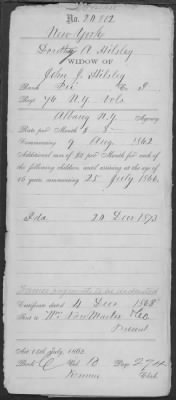 No. 20.812
New York
Dorothy A Hilsley
WIDOW OF
John J. Hilsley
Rank Pri Co.
Reg 76 N.Y. Vols
Albany N.Y. Agency
Rate per Month $ 8
Commencing 9 Aug. 1862
Additional sum of $2 per Month for each of
the following children, until arriving at the age of
16 years, commencing 25 July 1866.
Ida 20 Dec 1873
Former payment to be deducted
Certificate dated 4 Dec 1868
Sent to
Present
Act 14th July, 1862.
Book C Vol. 10 Page 274
Clerk